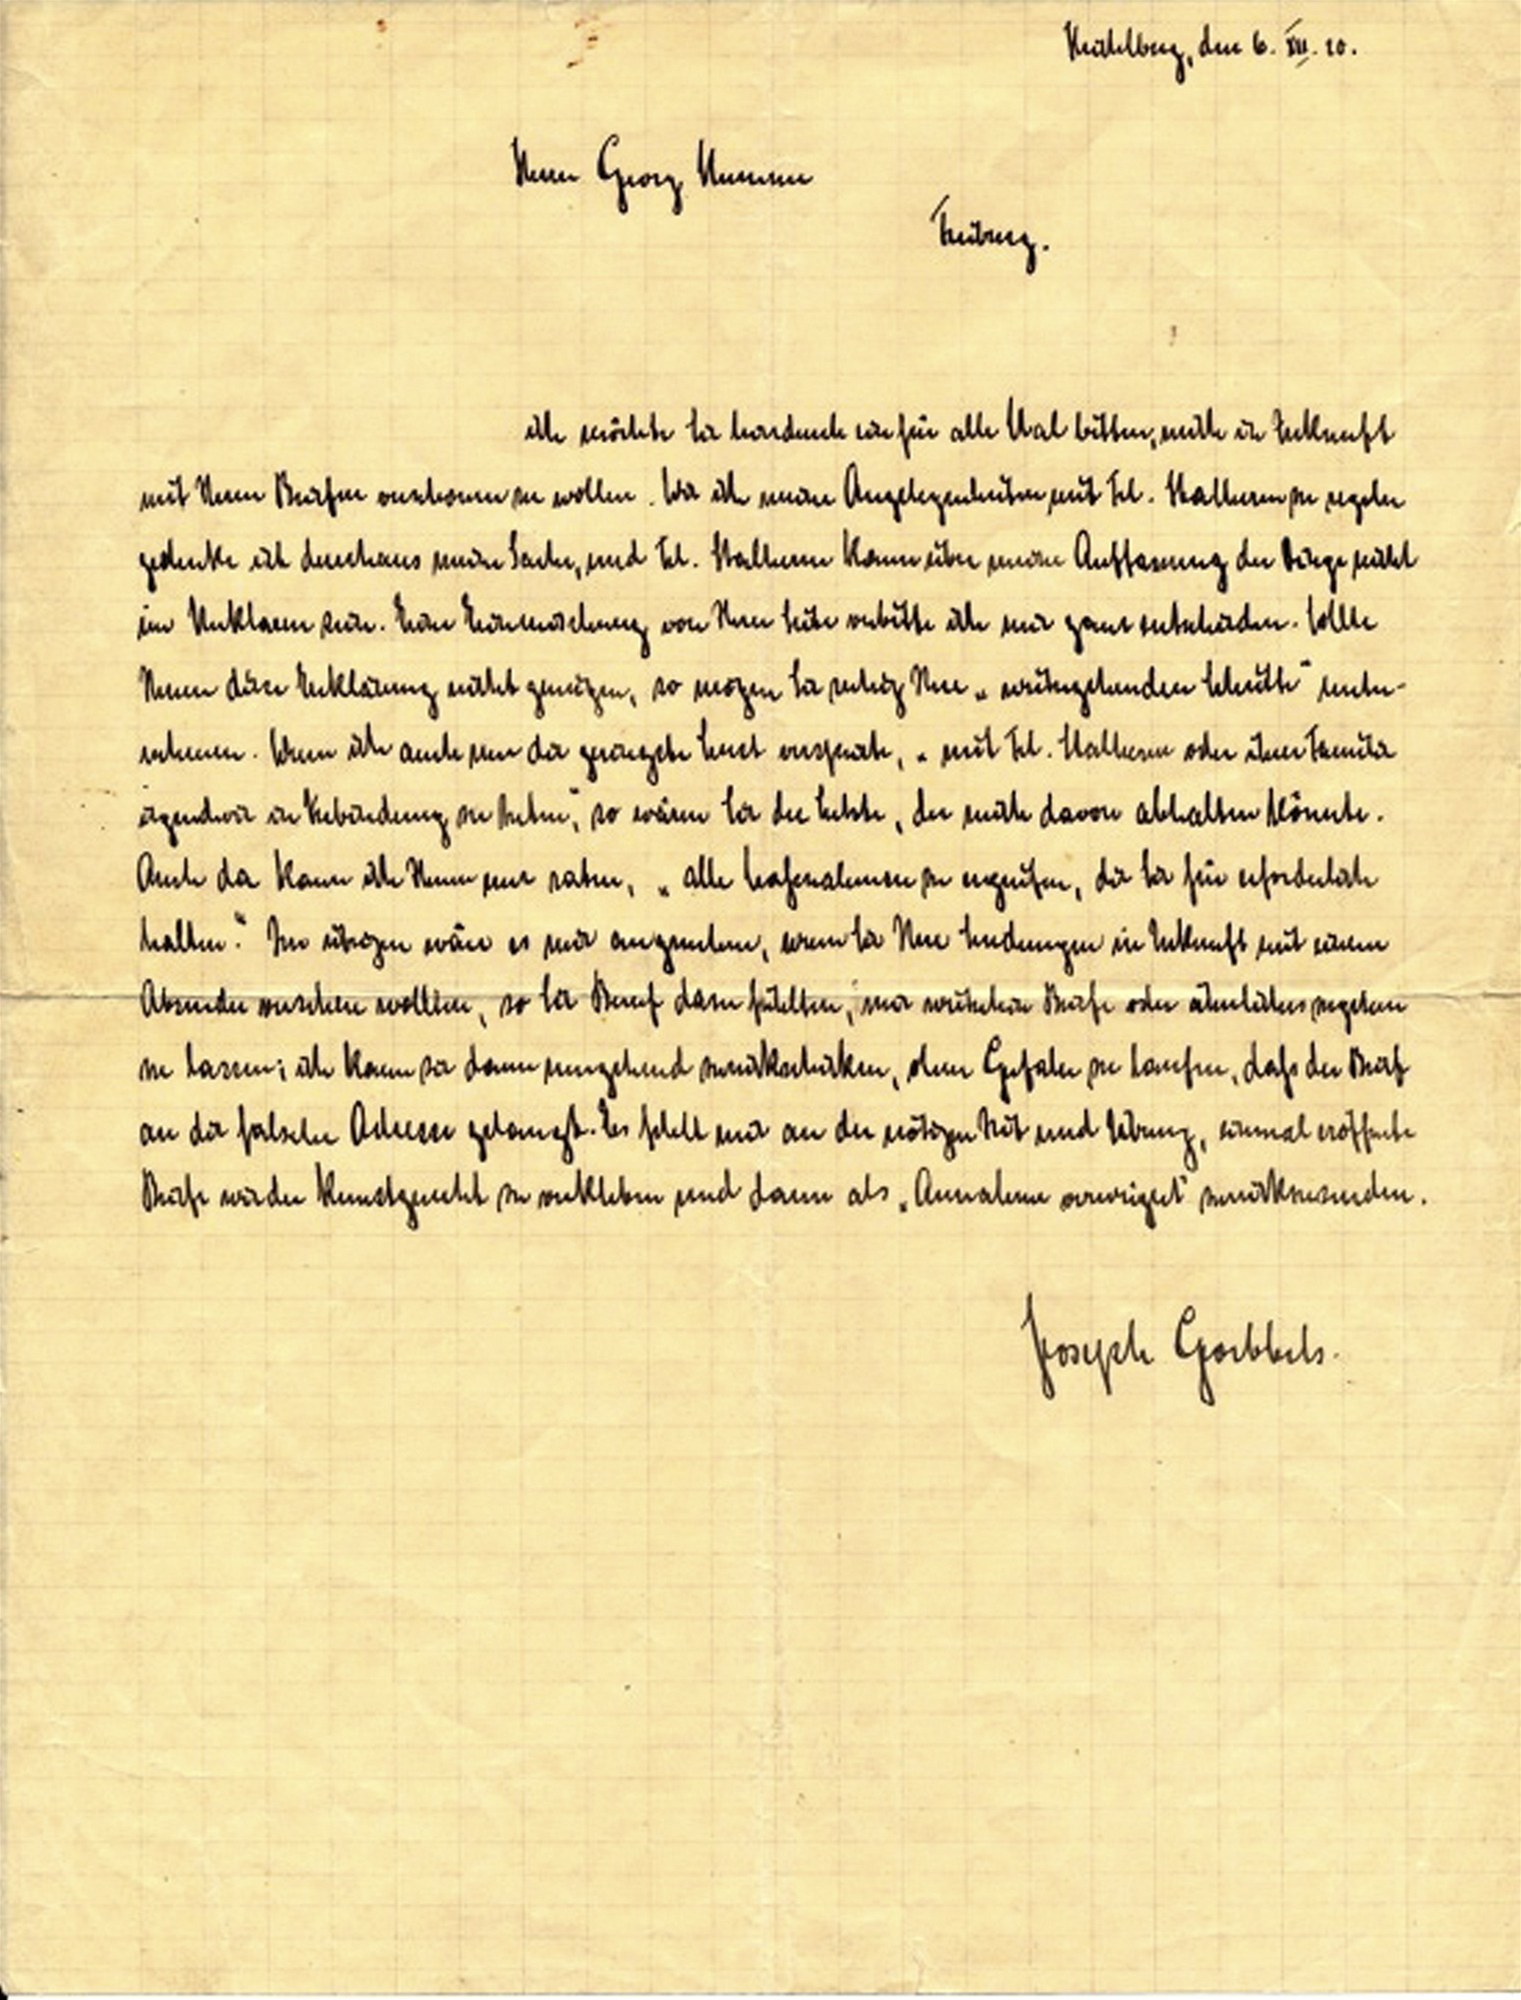 Heidelberg, den 6. XII. 20.
Herrn Georg Mumme
Freiburg.
ich möchte Sie hierdurch ein für alle Mal bitten, mich in Zukunft
mit Ihren Briefen verschonen zu wollen. Wie ich meine Angelegenheiten mit Frl. Stalherm zu regeln
gedenke ist durchaus meine Sache, und Frl. Stalherm kann über meine Auffassung der Dinge nicht
im Unklaren sein. Eine Einmischung von Ihrer Seite verbitte ich mir ganz entschieden. Sollte
Ihnen diese Erklärung nicht genügen, so mögen Sie ruhig Ihre „weitergehenden Schritte“ unter-
nehmen. Wenn ich auch nun die geringste Lust verspürte, „mit Frl. Stalherm oder ihrer Familie
irgendwie in Verbindung zu treten“, so wären Sie der Letzte, der mich davon abhalten könnte.
Auch da kann ich Ihnen nur raten, „alle Maßnahmen zu ergreifen, die Sie für erforderlich
halten.“ Im übrigen wäre es mir angenehm, wenn Sie Ihre Sendungen in Zukunft mit einem
Absender versehen wollten, so Sie Beruf dazu fühlten, mir weiterhin Briefe oder ähnliches zugehen
zu lassen; ich kann sie dann umgehend zurückschicken, ohne Gefahr zu laufen, daß der Brief
an die falsche Adresse gelangt. Es fehlt mir an der nötigen Zeit und Übung, einmal eröffnete
Briefe wieder kunstgerecht zu verkleben und dann als „Annahme verweigert“ zurückzusenden.
Joseph Goebbels.